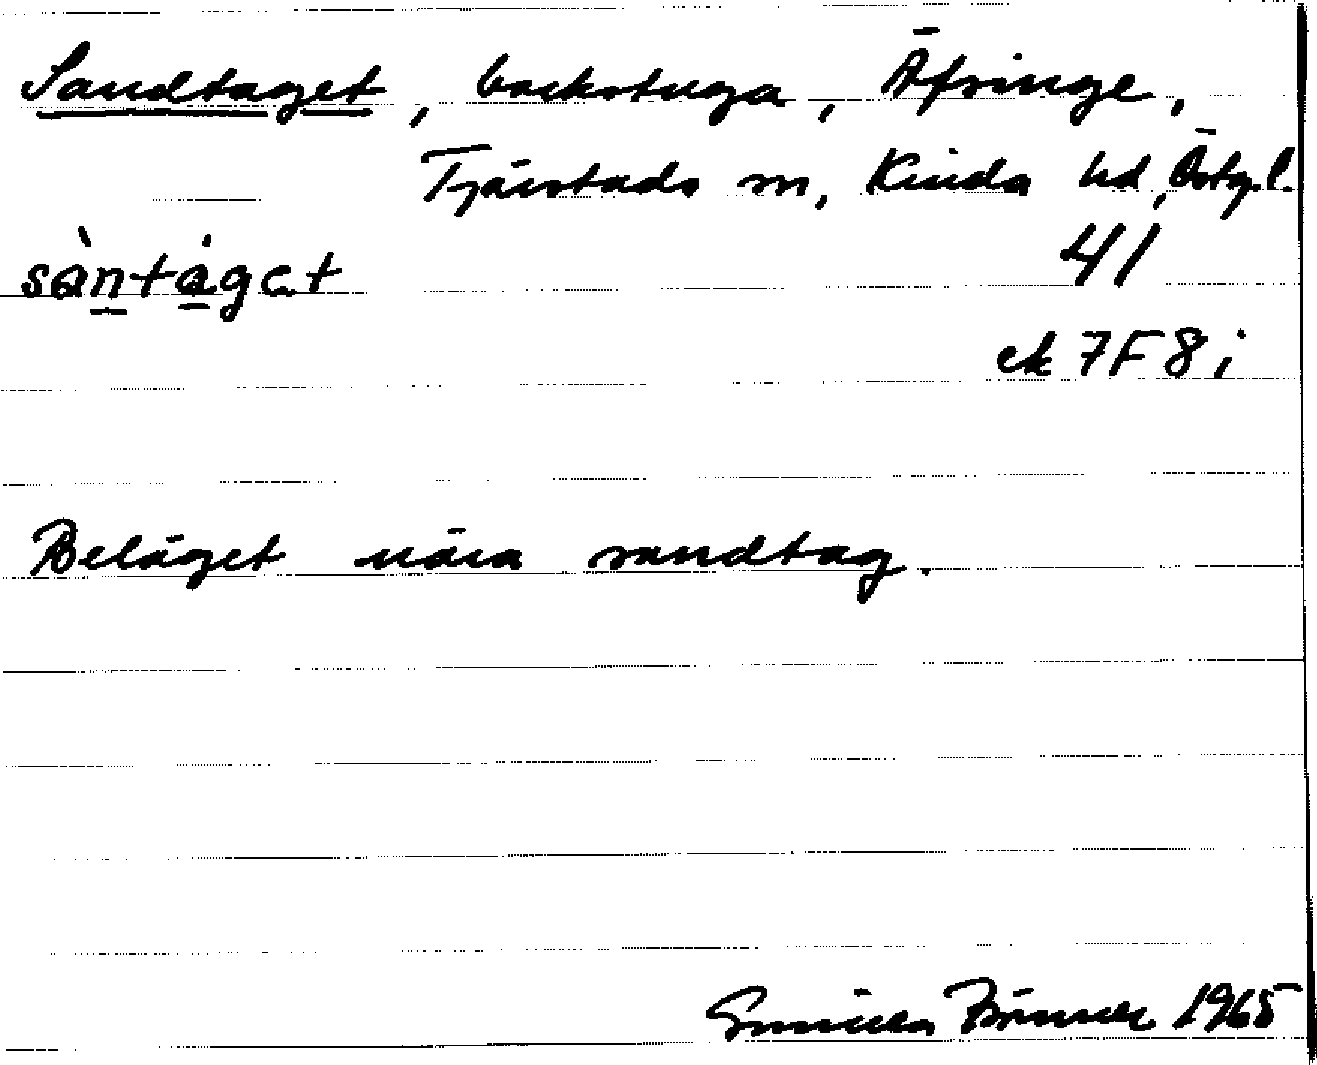 Sandtaget, backstuga, Äfsinge,
Tjärstads sn, Kinda hd, Östg.l.
sàntàget 41
ek 7F8i
Beläget nära sandtag.
Gunilla 1965